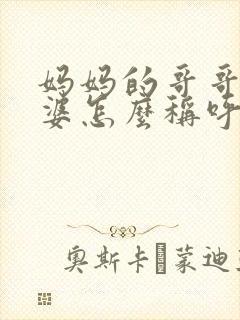 妈妈的哥哥
婆怎麼稱呼
奧斯卡·蒙迪